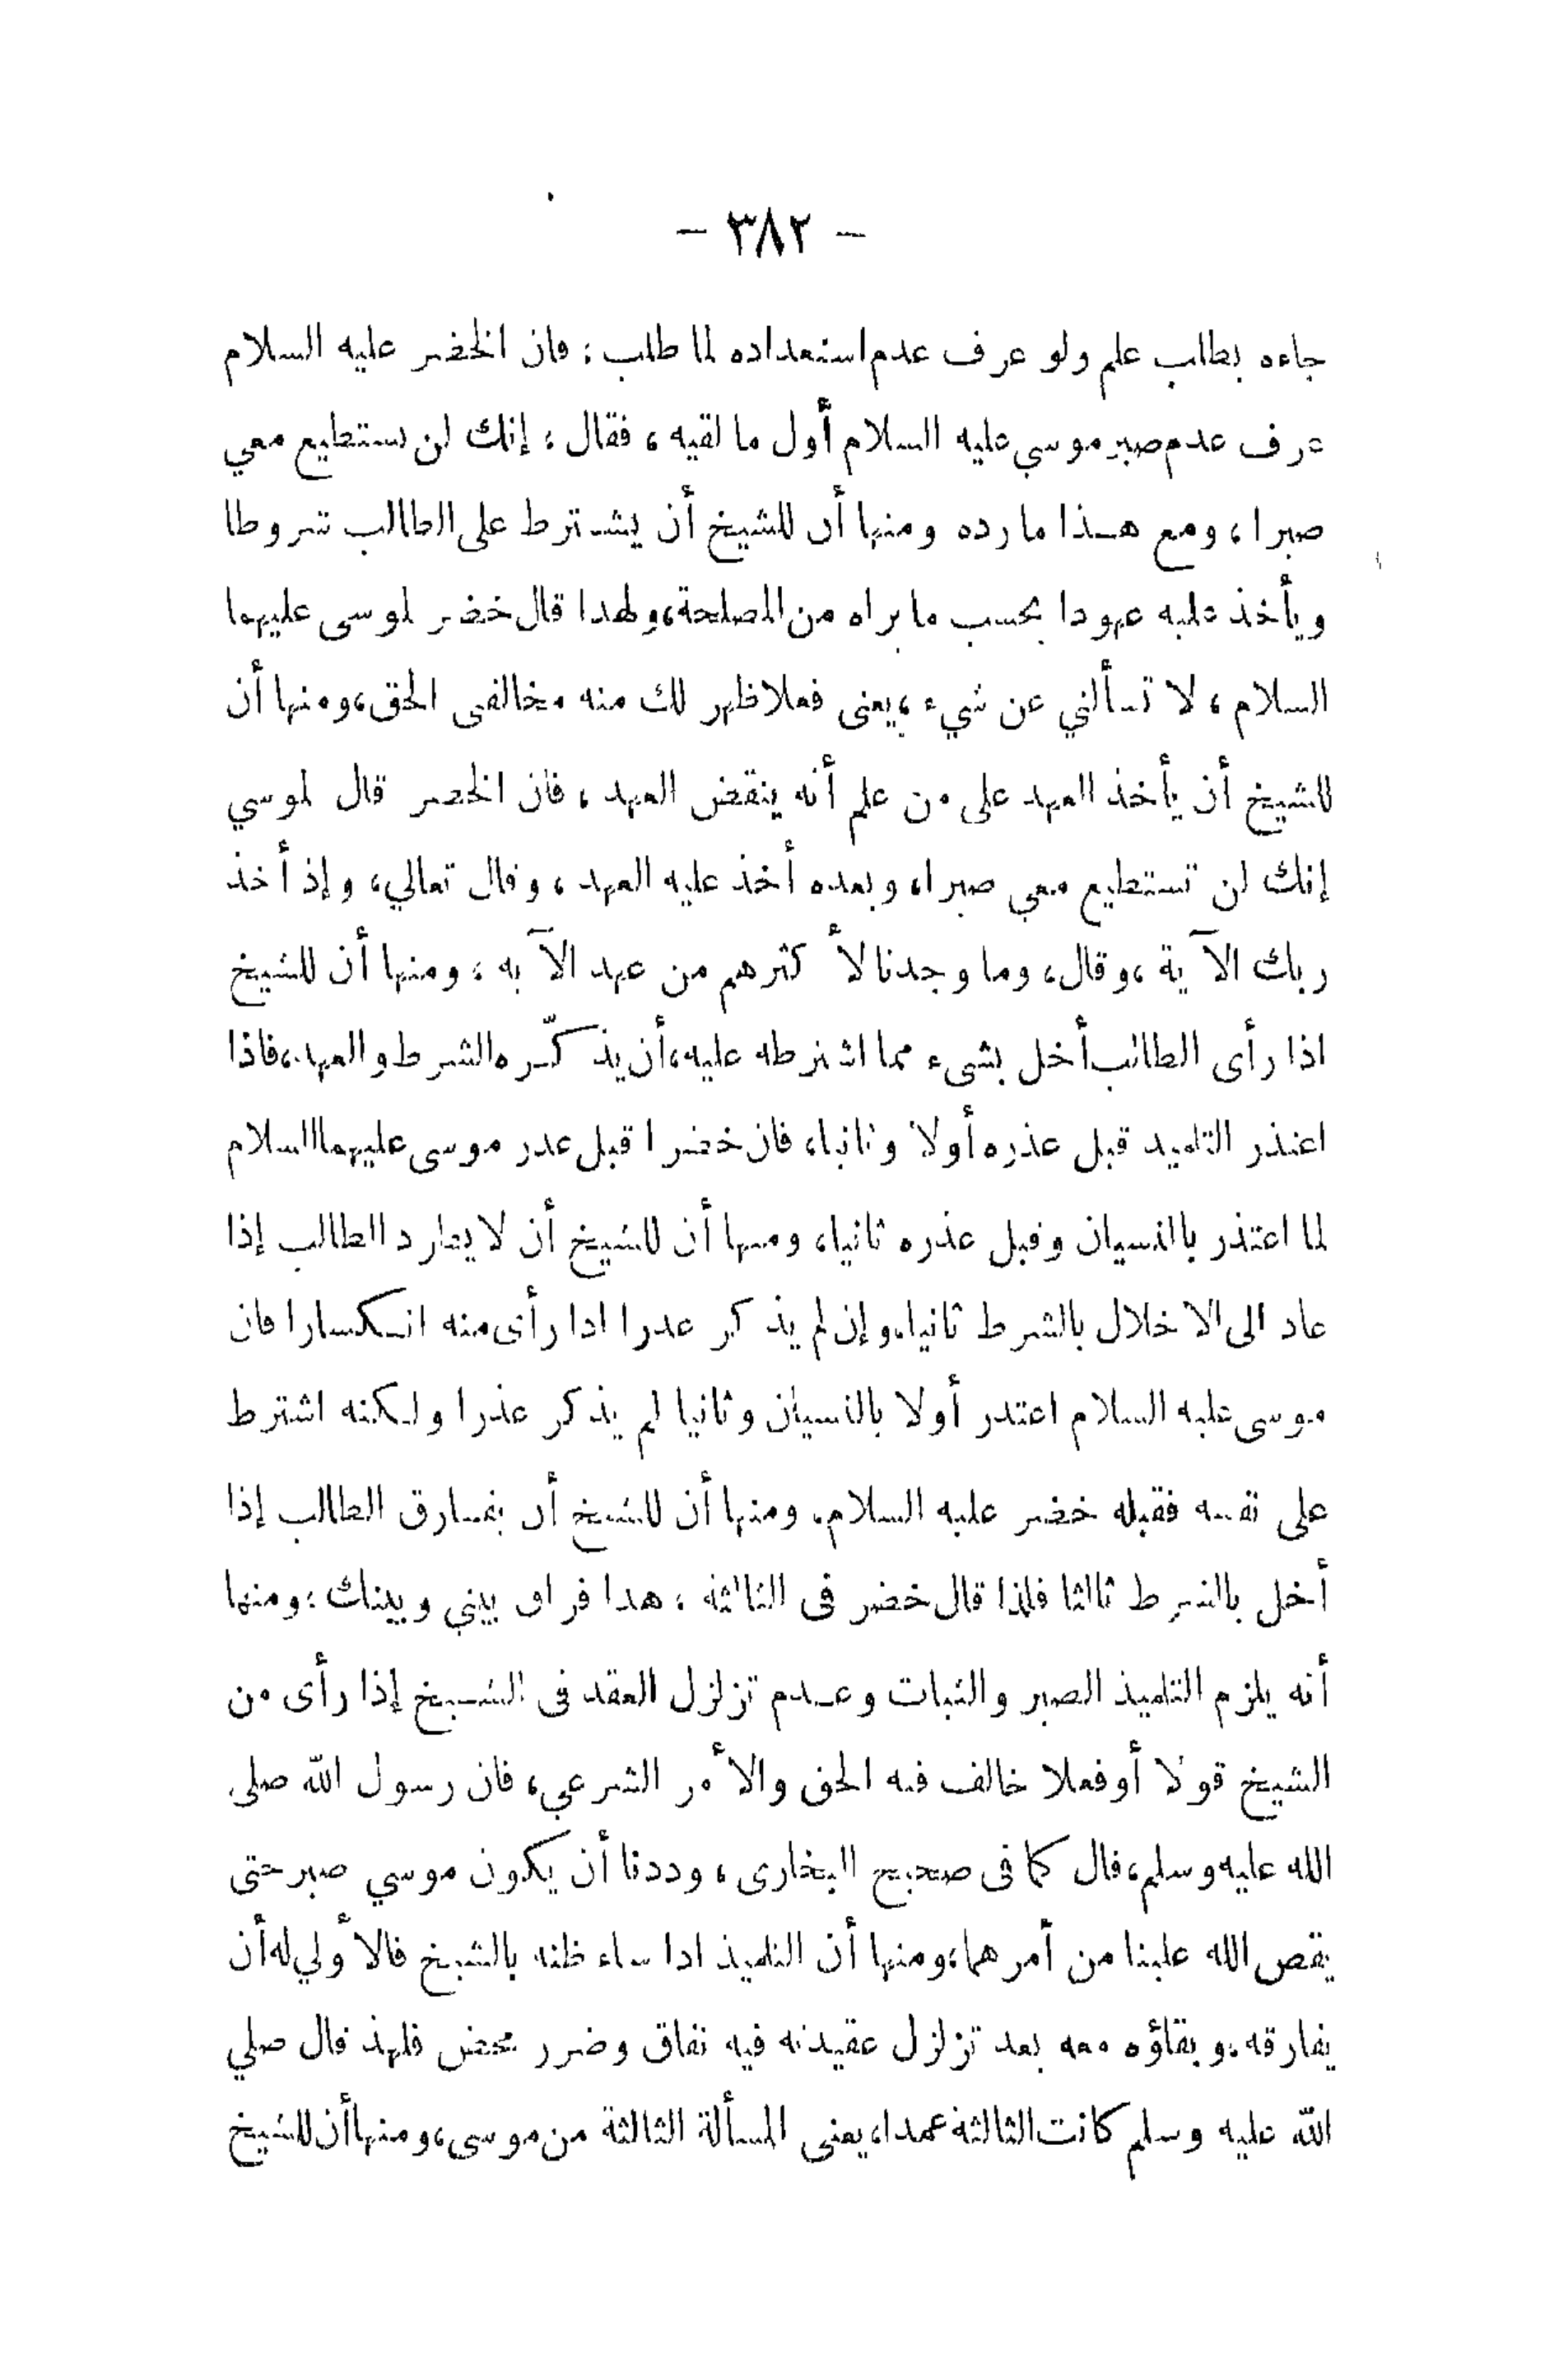 - ٣٨٢ -
جاءه بطلب علم ولو عرف عدم استعداده لما طلب؛ فان الخضر عليه السلام
عرف عدم صبر موسي عليه السلام أول ما لقيه، فقال، إنك لن تستطيع معي
صبرا، ومع هذا مارده ومنها أن للشيخ أن يشترط على الطالب شروطا
ويأخذ عليه عهودا بحسب ما يراه من المصلحة، ولهذا قال خضر لموسى عليهما
السلام، لا تسألني عن شيء، يعنى فعلا ظهر لك منه مخالفى الحق، ومنها أن
للشيخ أن يأخذ العهد على من علم أنه ينقض العهد، فان الخضر قال لموسي
إنك لن تستطيع معي صبرا، وبعده أخذ عليه العهد، وقال تعالي، وإذ أخذ
ربك الآية، وقال، وما وجدنا لأكثرهم من عهد الآية، ومنها أن للشيخ
اذا رأى الطالب أخل بشىء مما اشترطه عليه، أن يذكّره الشرط والعهد، فاذا
اعتذر التلميذ قبل عذره أولا وثانيا، فان خضرا قبل عذر موسى عليهما السلام
لما اعتذر بالنسيان وقبل عذره ثانيا، ومنها أن للشيخ أن لا يطارد الطالب إذا
عاد الى الاخلال بالشرط ثانيا، وإن لم يذكر عذرا اذا رأى منه انكسارا فان
موسى عليه السلام اعتذر أولا بالنسيان وثانيا لم يذكر عذرا ولكنه اشترط
على نفسه فقبله خضر عليه السلام، ومنها أن للشيخ أن يفارق الطالب إذا
أخل بالشرط ثالثا فلذا قال خضر فى الثالثة، هذا فراق بيني وبينك، ومنها
أنه يلزم التلميذ الصبر والثبات وعدم تزلزل العقد فى الشيخ إذا رأى من
الشيخ قولا أو فعلا خالف فيه الحق والأمر الشرعي، فان رسول الله صلى
الله عليه وسلم، قال كما فى صحيح البخارى، وددنا أن يكون موسي صبر حتى
يقص الله علينا من أمرهما، ومنها أن التلميذ اذا ساء ظنه بالشيخ فالأولي له أن
يفارقه، وبقاؤه معه بعد تزلزل عقيدته فيه نفاق وضرر محض فلهذ قال صلي
الله عليه وسلم كانت الثالثة عمدا، يعنى المسألة الثالثة من موسى، ومنها أن للشيخ